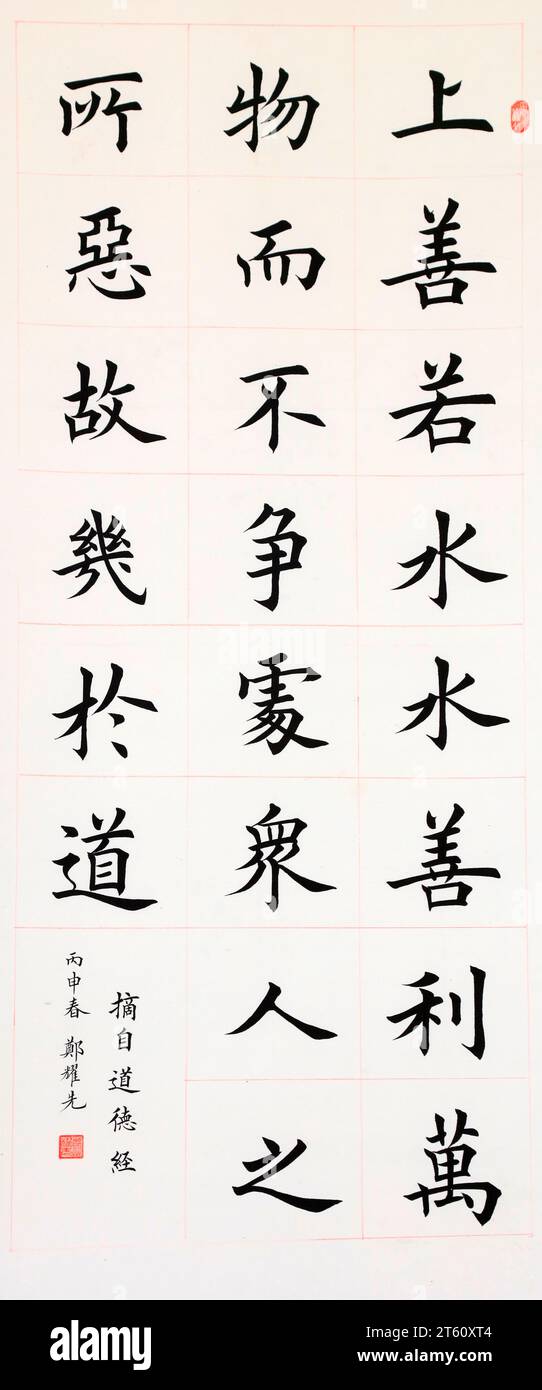 上善若水水善利萬
物而不争處衆人之
所惡故幾於道
摘自道德经
丙申春 鄭耀先
alamy
Image ID: 2T60XT4
www.alamy.com